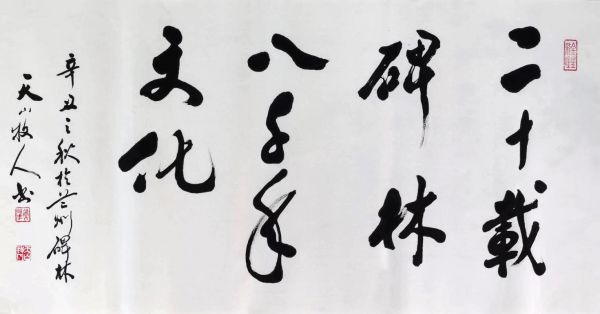 二十載
碑林
八千年
文化
辛丑之秋於兰州碑林
天山牧人书